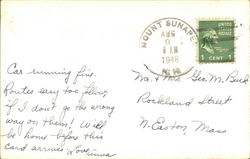 MOUNT SUNAPEE
AUG
8 AM
1948
N.H.
1 CENT
Car running fine.
Routes easy too follow
if I don't go the wrong
way on them! Will
be home before this
card arrives.
Mr. & Mrs. Geo. M. Buck
Rockland Street
N. Easton Mass